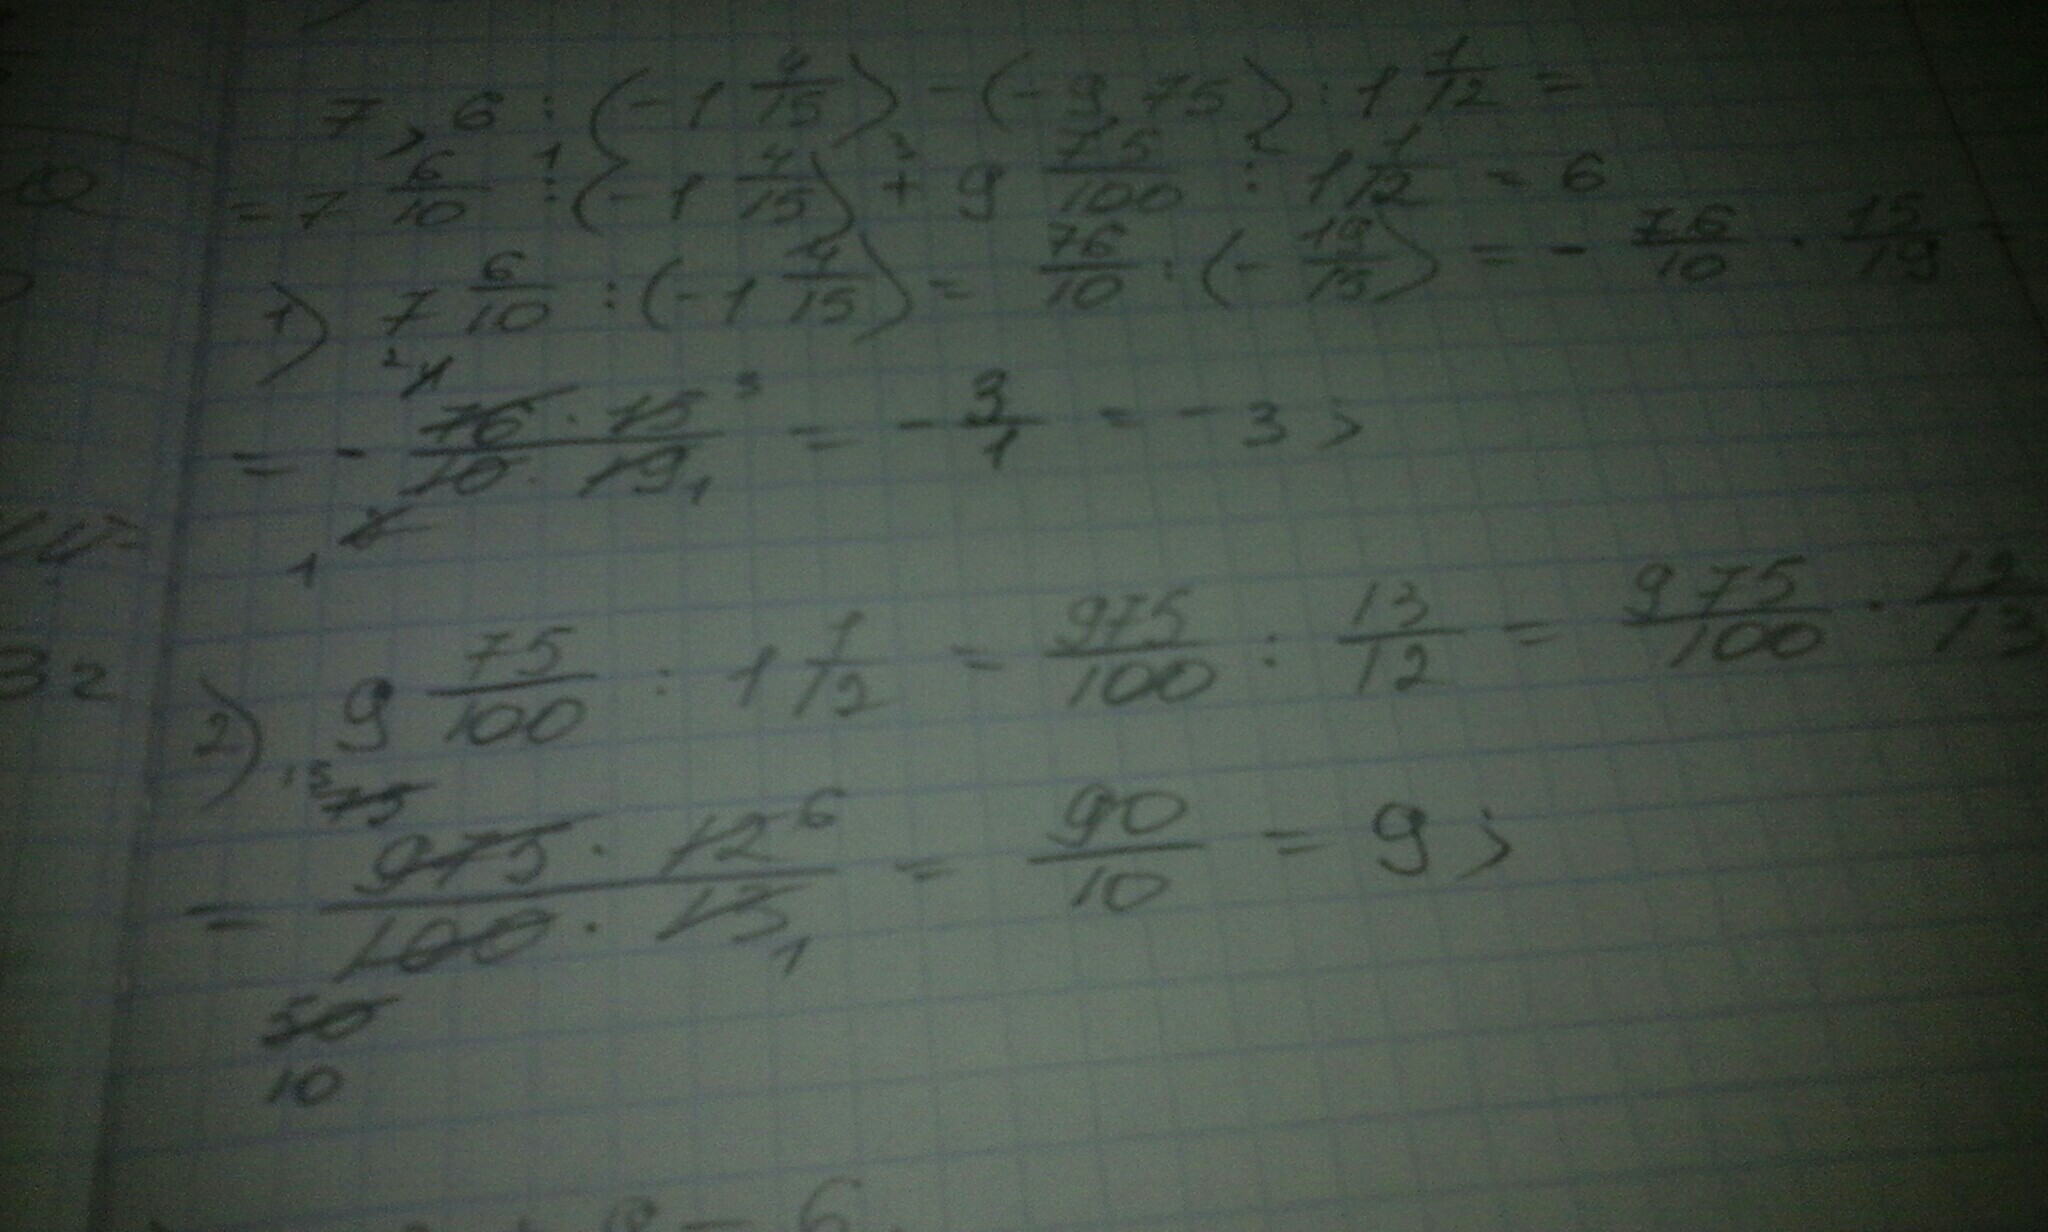 7,6 : (-1 4/15) - (-9,75) : 1 1/12 =
= 7 6/10 : (-1 4/15) + 9 75/100 : 1 1/12 = 6
1) 7 6/10 : (-1 4/15) = 76/10 : (- 19/15) = - 76/10 · 15/19 =
= - 76 · 15 / 10 · 19 = - 3/1 = -3;
2) 9 75/100 : 1 1/12 = 975/100 : 13/12 = 975/100 · 12/13
= 975 · 12 / 100 · 13 = 90/10 = 9;